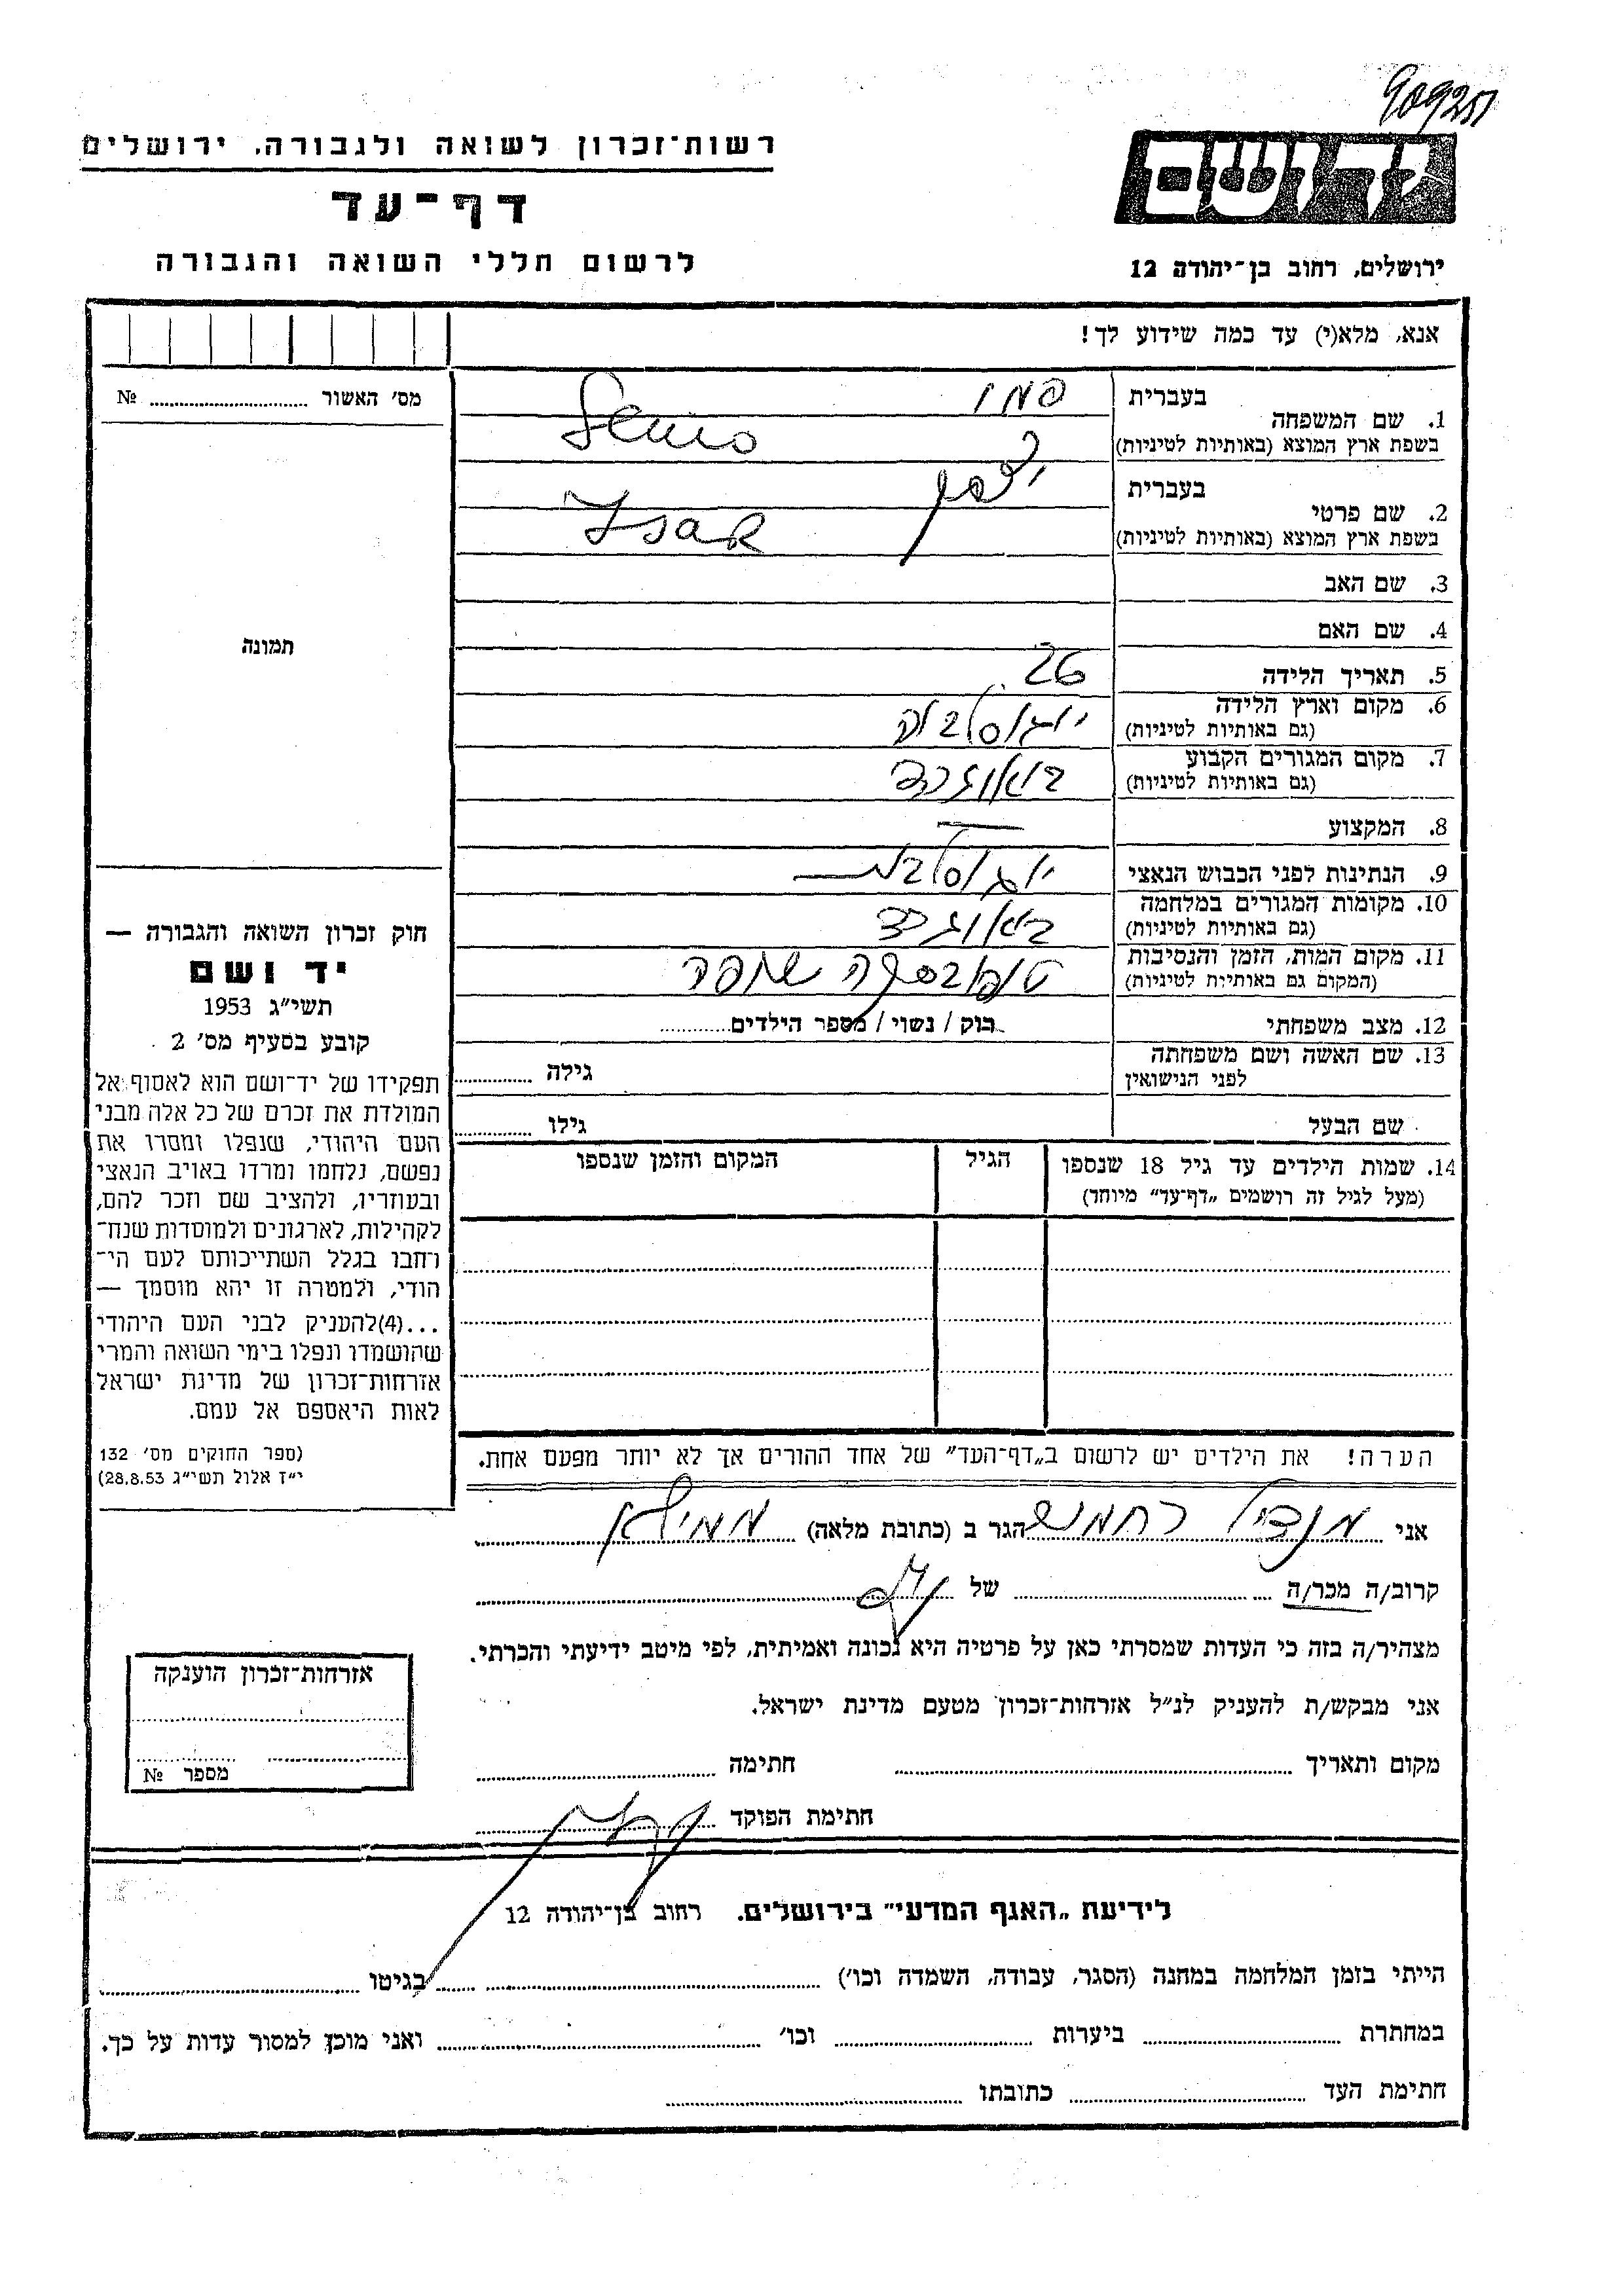 909251
רשות־זכרון לשואה ולגבורה, ירושלים
דף־עד
לרשום חללי השואה והגבורה
יד ושם
ירושלים, רחוב בן־יהודה 12
אנא, מלא(י) עד כמה שידוע לך!
מס׳ האשור № 
1. שם המשפחה בעברית סמו
בשפת ארץ המוצא (באותיות לטיניות) Semo
2. שם פרטי בעברית יצחק
בשפת ארץ המוצא (באותיות לטיניות) Isak
3. שם האב
4. שם האם
תמונה
5. תאריך הלידה 26
6. מקום וארץ הלידה יוגוסלביה
(גם באותיות לטיניות)
7. מקום המגורים הקבוע באוגרד
(גם באותיות לטיניות)
8. המקצוע —
9. הנתינות לפני הכבוש הנאצי יוגוסלבית
10. מקומות המגורים במלחמה באוגרד
(גם באותיות לטיניות)
11. מקום המות, הזמן והנסיבות
(המקום גם באותיות לטיניות)
12. מצב משפחתי רוק / נשוי / מספר הילדים
13. שם האשה ושם משפחתה גילה
לפני הנישואין
שם הבעל גילו
14. שמות הילדים עד גיל 18 שנספו הגיל המקום והזמן שנספו
(מעל לגיל זה רושמים „דף־עד״ מיוחד)
חוק זכרון השואה והגבורה —
יד ושם
תשי״ג 1953
קובע בסעיף מס׳ 2
תפקידו של יד־ושם הוא לאסוף אל
המולדת את זכרם של כל אלה מבני
העם היהודי, שנפלו ומסרו את
נפשם, נלחמו ומרדו באויב הנאצי
ובעוזריו, ולהציב שם וזכר להם,
לקהילות, לארגונים ולמוסדות שנח־
רחבו בגלל השתייכותם לעם הי־
הודי, ולמטרה זו יהא מוסמך —
...(4)להעניק לבני העם היהודי
שהושמדו ונפלו בימי השואה והמרי
אזרחות־זכרון של מדינת ישראל
לאות היאספם אל עמם.
(ספר החוקים מס׳ 132
י״ז אלול תשי״ג 28.8.53)
הערה! את הילדים יש לרשום ב„דף־העד״ של אחד ההורים אך לא יותר מפעם אחת.
אני מנדיל רחמים הגר ב (כתובת מלאה)
קרוב/ה מכר/ה של
מצהיר/ה בזה כי העדות שמסרתי כאן על פרטיה היא נכונה ואמיתית, לפי מיטב ידיעתי והכרתי.
אני מבקש/ת להעניק לנ״ל אזרחות־זכרון מטעם מדינת ישראל.
מקום ותאריך חתימה
חתימת הפוקד
אזרחות־זכרון הוענקה
מספר №
לידיעת „האגף המדעי״ בירושלים. רחוב בן־יהודה 12
הייתי בזמן המלחמה במחנה (הסגר, עבודה, השמדה וכו׳) בגיטו
במחתרת ביערות וכו׳ ואני מוכן למסור עדות על כך.
חתימת העד כתובתו